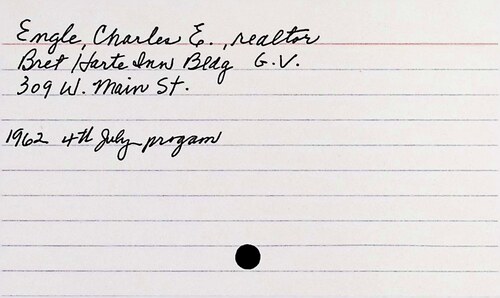 Engle, Charles E., realtor
Bret Harte Inn Bldg G.V.
309 W. Main St.
1962 4th July progam